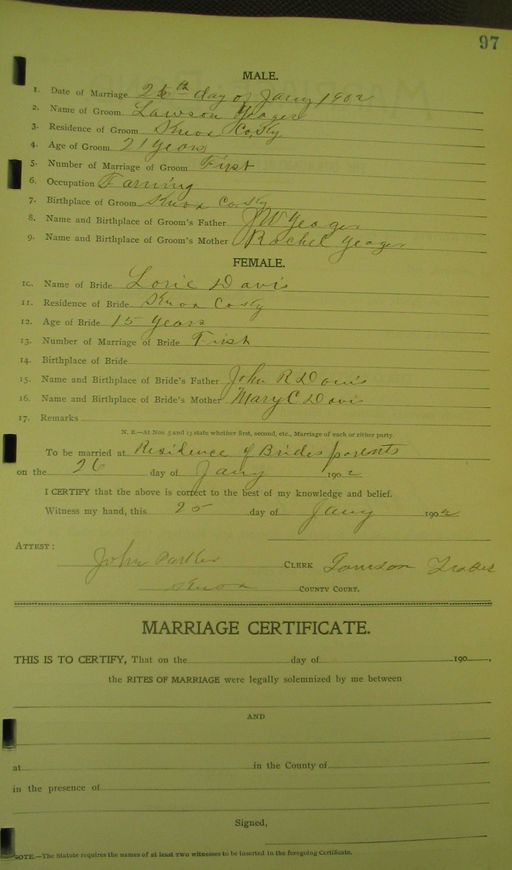 97
MALE.
1. Date of Marriage 26th day of Jany 1902
2. Name of Groom Lawson Yeager
3. Residence of Groom Knox Co Ky
4. Age of Groom 21 years
5. Number of Marriage of Groom First
6. Occupation Farming
7. Birthplace of Groom Knox Co Ky
8. Name and Birthplace of Groom's Father J W Yeager
9. Name and Birthplace of Groom's Mother Rachel Yeager
FEMALE.
10. Name of Bride Davis
11. Residence of Bride Knox Co Ky
12. Age of Bride 15 years
13. Number of Marriage of Bride First
14. Birthplace of Bride
15. Name and Birthplace of Bride's Father John R Davis
16. Name and Birthplace of Bride's Mother Mary C Davis
17. Remarks
N. B.—At Nos. 5 and 13 state whether first, second, etc., Marriage of each or either party.
To be married at Residence of Brides parents
on the 26 day of Jany 1902
I CERTIFY that the above is correct to the best of my knowledge and belief.
Witness my hand, this 25 day of Jany 1902
ATTEST:
John CLERK
Knox COUNTY COURT.
MARRIAGE CERTIFICATE.
THIS IS TO CERTIFY, That on the day of 190 ,
the RITES OF MARRIAGE were legally solemnized by me between
AND
at in the County of
in the presence of
Signed,
NOTE.—The Statute requires the names of at least two witnesses to be inserted in the foregoing Certificate.